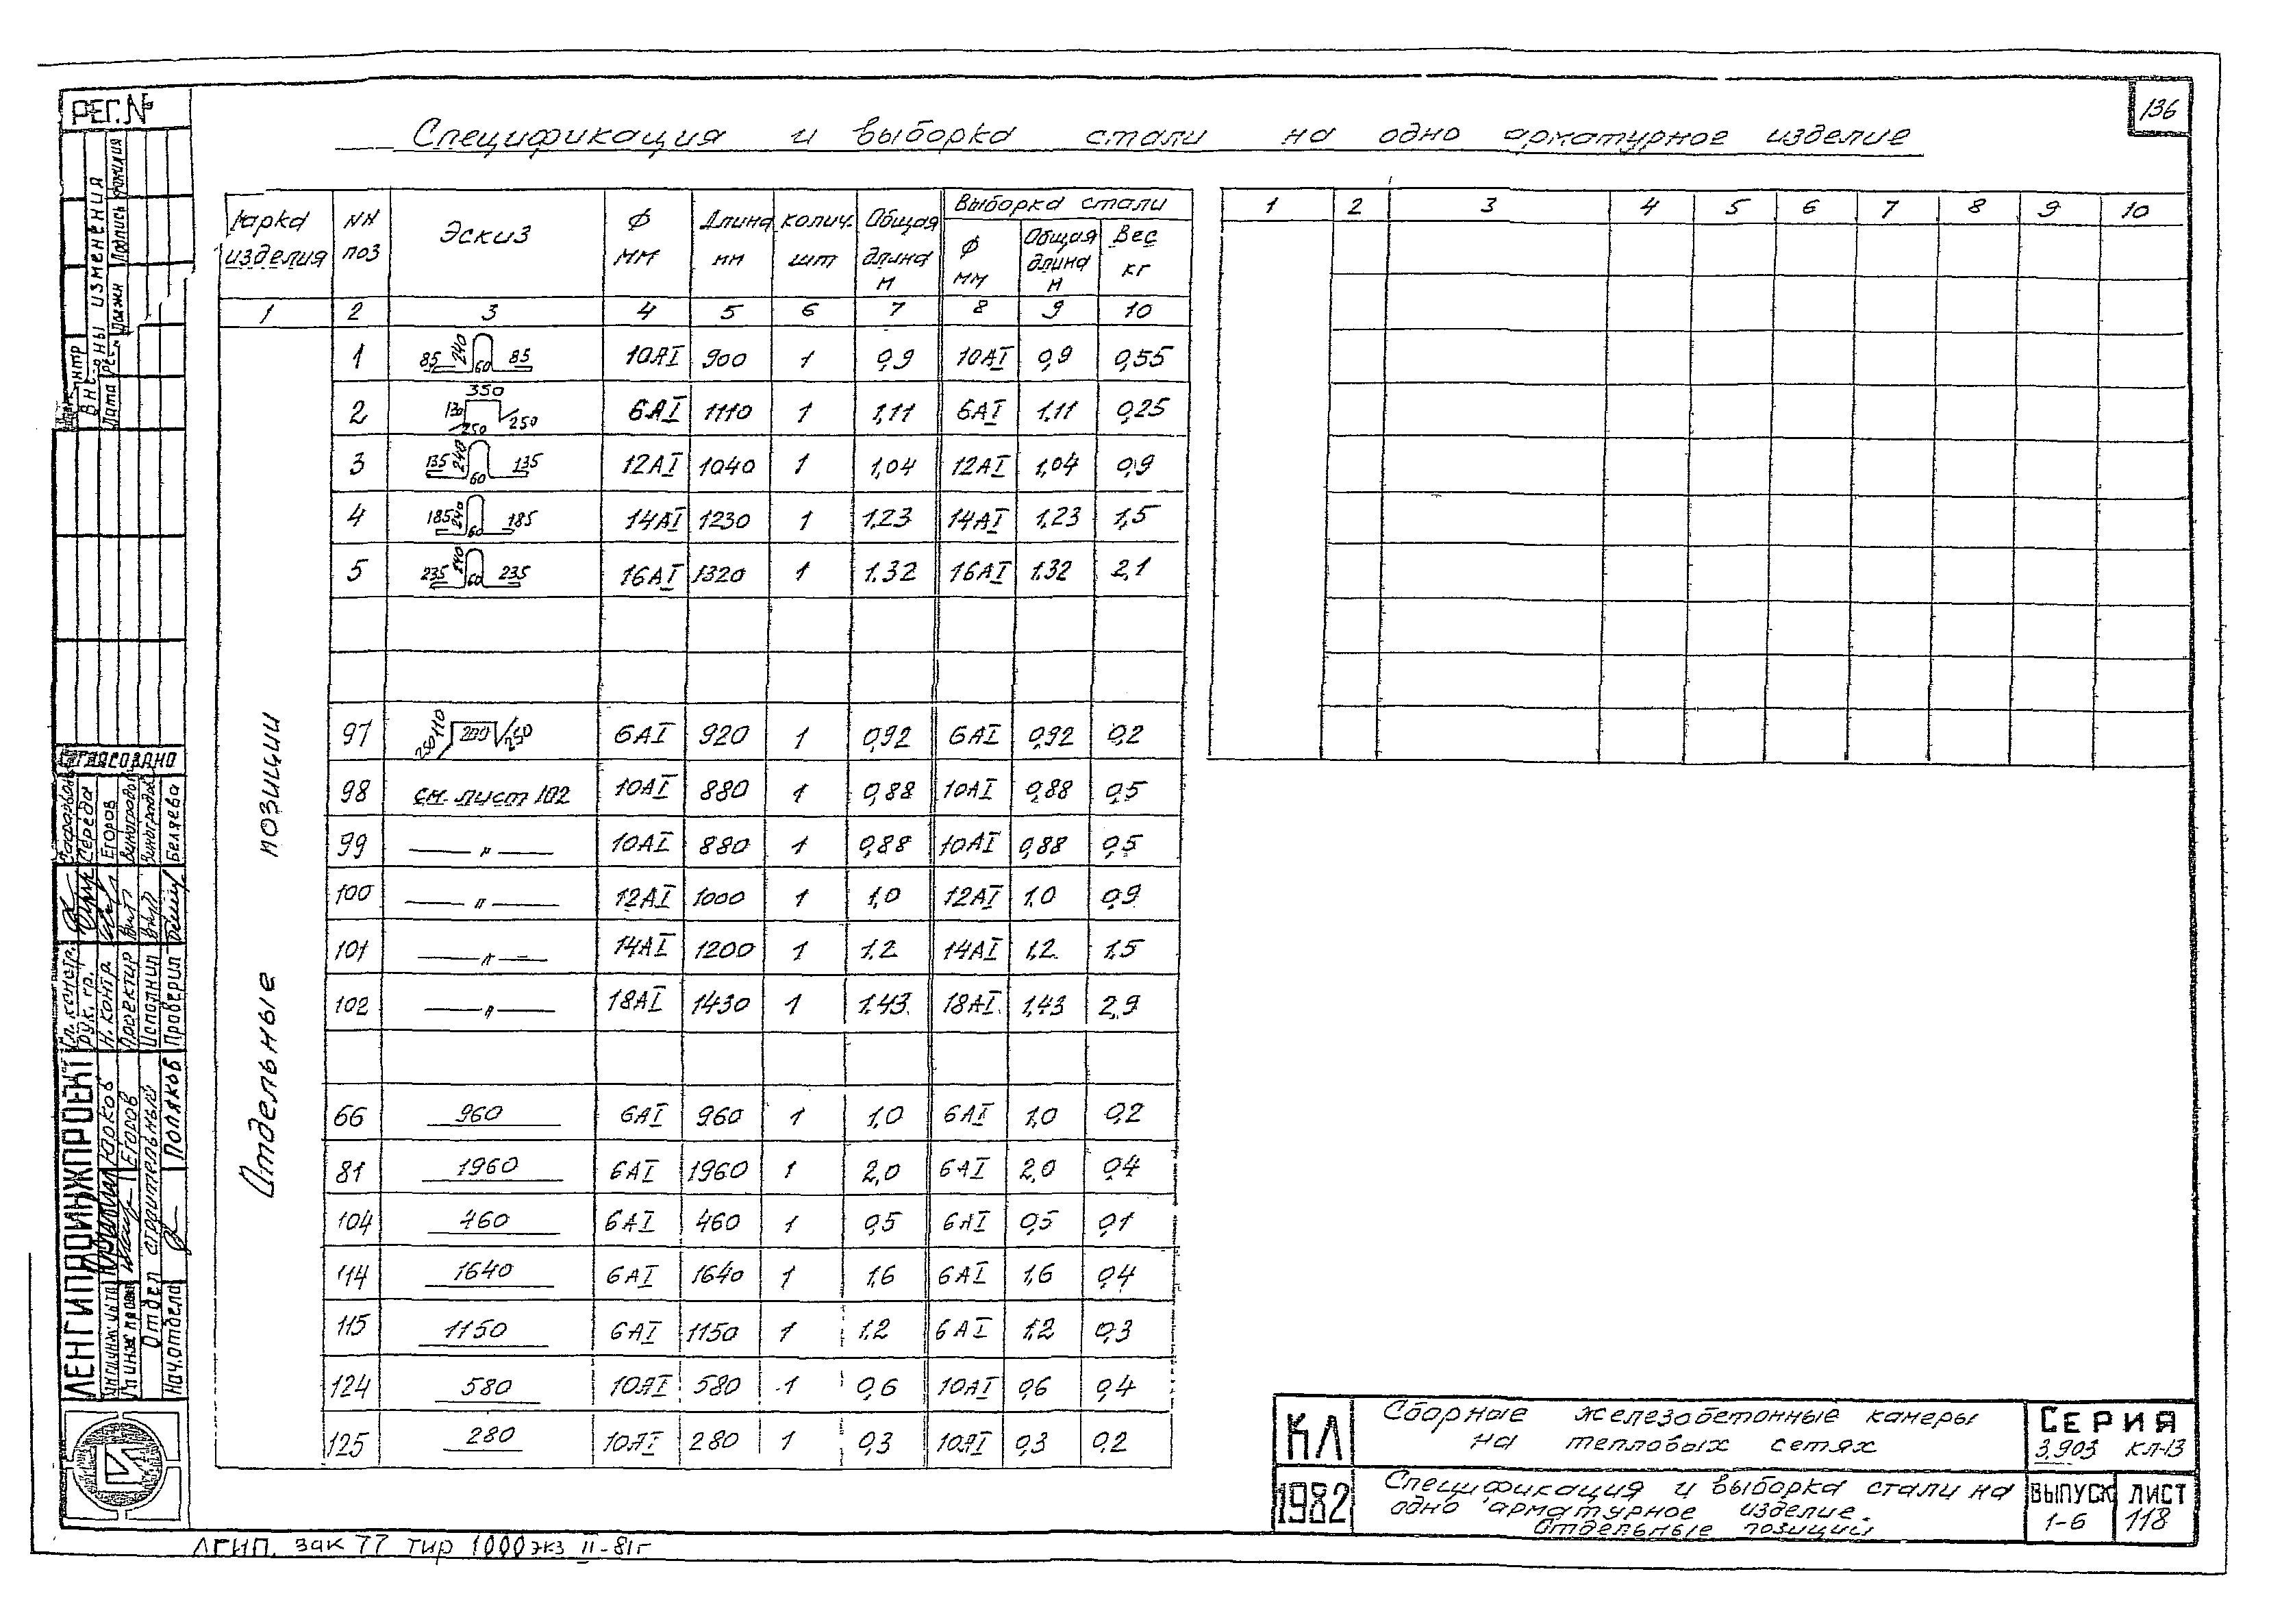 136
РЕГ.№
Спецификация и выборка стали на одно арматурное изделие
Марка изделия
NN поз
Эскиз
Ф мм
Длина мм
колич. шт
Общая длина м
Выборка стали
Ф мм
Общая длина м
Вес кг
1 2 3 4 5 6 7 8 9 10
1 2 3 4 5 6 7 8 9 10
Отдельные позиции
1 85 240 60 85 10АI 900 1 0,9 10АI 0,9 0,55
2 130 350 250 250 6АI 1110 1 1,11 6АI 1,11 0,25
3 135 240 60 135 12АI 1040 1 1,04 12АI 1,04 0,9
4 185 240 60 185 14АI 1230 1 1,23 14АI 1,23 1,5
5 235 240 60 235 16АI 1320 1 1.32 16АI 1.32 2,1
97 250 110 200 250 6АI 920 1 0,92 6АI 0,92 0,2
98 см. лист 102 10АI 880 1 0,88 10АI 0,88 0,5
99 — " — 10АI 880 1 0,88 10АI 0,88 0,5
100 — " — 12АI 1000 1 1,0 12АI 1.0 0,9
101 — " — 14АI 1200 1 1.2 14АI 1.2 1,5
102 — " — 18АI 1430 1 1.43 18АI 1,43 2,9
66 960 6АI 960 1 1,0 6АI 1,0 0,2
81 1960 6АI 1960 1 2,0 6АI 2,0 0,4
104 460 6АI 460 1 0,5 6АI 0,5 0,1
114 1640 6АI 1640 1 1,6 6АI 1,6 0,4
115 1150 6АI 1150 1 1.2 6АI 1,2 0,3
124 580 10АI 580 1 0,6 10АI 0,6 0,4
125 280 10АI 280 1 0,3 10АI 0,3 0,2
изменения
Должн Подпись Фамилия
Дата
Согласовано
Гл. констр.
рук. гр. Середа
Н. контр. Егоров
Проектир Виноградов
Исполнил
Проверил Беляева
ЛЕНГИПРОИНЖПРОЕКТ
Юрков
Егоров
Отдел строительный
Нач. отдела Поляков
КЛ
1982
Сборные железобетонные камеры
на тепловых сетях
Спецификация и выборка стали на
одно арматурное изделие.
Отдельные позиции
СЕРИЯ
3.903 КЛ-13
ВЫПУСК
1-6
ЛИСТ
118
ЛГИП. зак 77 тир 1000 экз II-81г